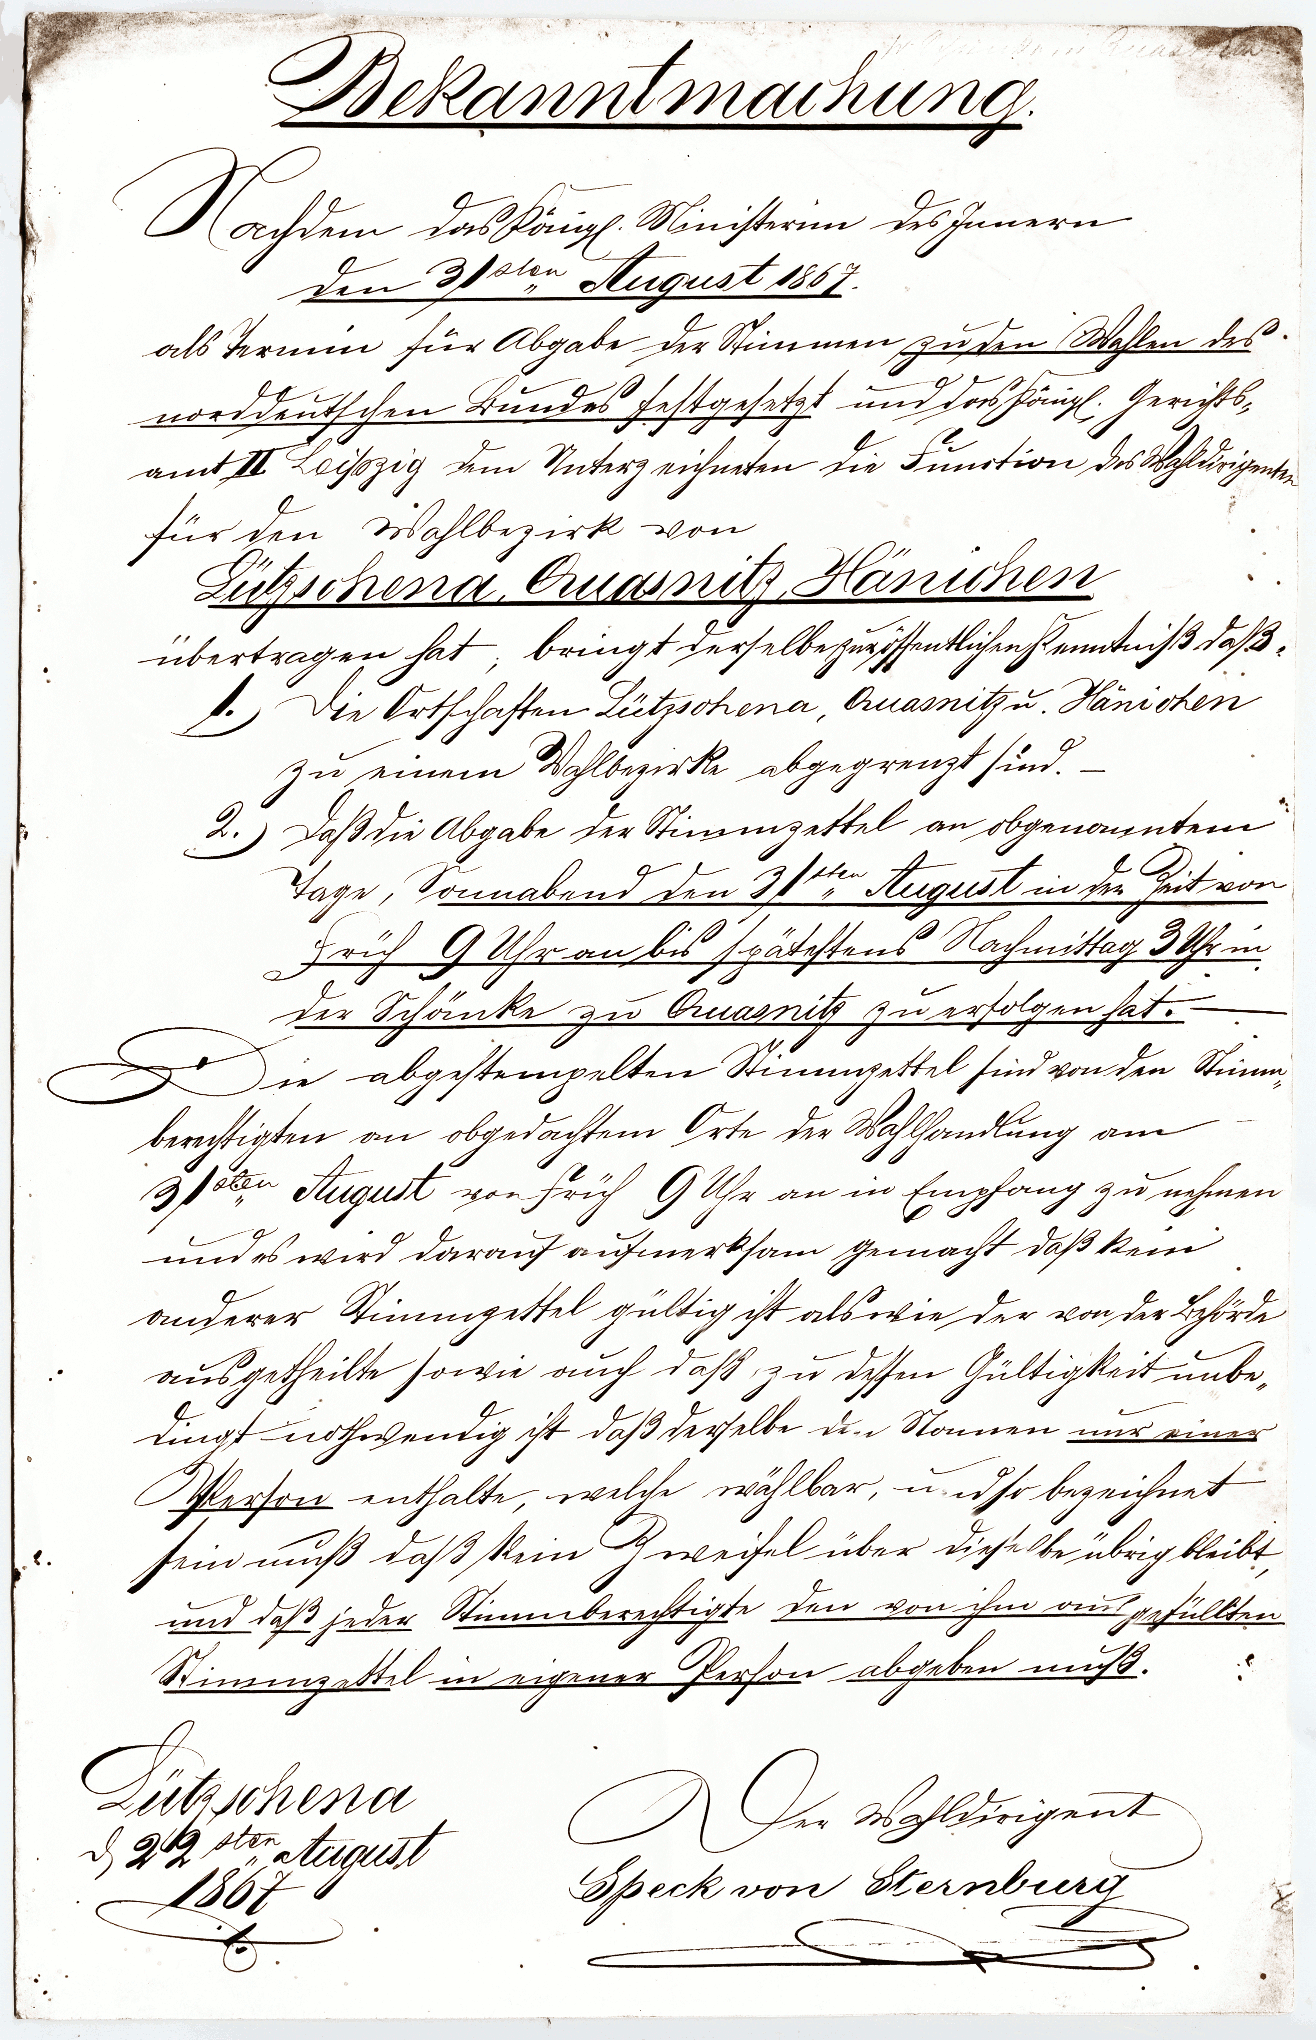 Bekanntmachung.
Nachdem das Königl. Ministerium des Innern
den 31sten August 1867.
als Termin für Abgabe der Stimmen zu den Wahlen des
norddeutschen Bundes festgesetzt und das Königl. Gerichts-
amt II Leipzig dem Unterzeichneten die Function des Wahldirigenten
für den Wahlbezirk von
Lützschena, Quasnitz, Hänichen
übertragen hat, bringt derselbe zur öffentlichen Kenntniß daß.
1.) Die Ortschaften Lützschena, Quasnitz u. Hänichen
zu einem Wahlbezirke abgegrenzt sind. –
2.) Daß die Abgabe der Stimmzettel an obgenanntem
Tage, Sonnabend den 31sten August in der Zeit von
Früh 9 Uhr an bis spätestens Nachmittag 3 Uhr in
der Schänke zu Quasnitz zu erfolgen hat. –
Die abgestempelten Stimmzettel sind von den Stimm-
berechtigten an obgedachtem Orte der Wahlhandlung am
31sten August von Früh 9 Uhr an in Empfang zu nehmen
und es wird darauf aufmerksam gemacht daß kein
anderer Stimmzettel gültig ist als wie der von der Behörde
ausgetheilte sowie auch daß, zu dessen Gültigkeit unbe-
dingt nothwendig ist daß derselbe den Namen nur einer
Person enthalte, welche wählbar, und so bezeichnet
sein muß daß kein Zweifel über dieselbe übrig bleibt,
und daß jeder Stimmberechtigte den von ihm ausgefüllten
Stimmzettel in eigener Person abgeben muß.
Lützschena
d 22sten August
1867
Der Wahldirigent
Speck von Sternburg